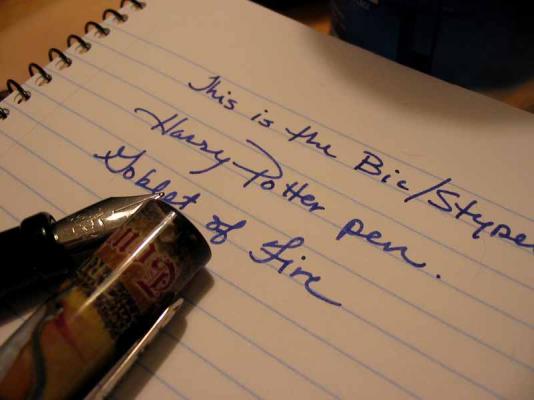 This is the Bic/Stype
Harry Potter pen.
Goblet of Fire